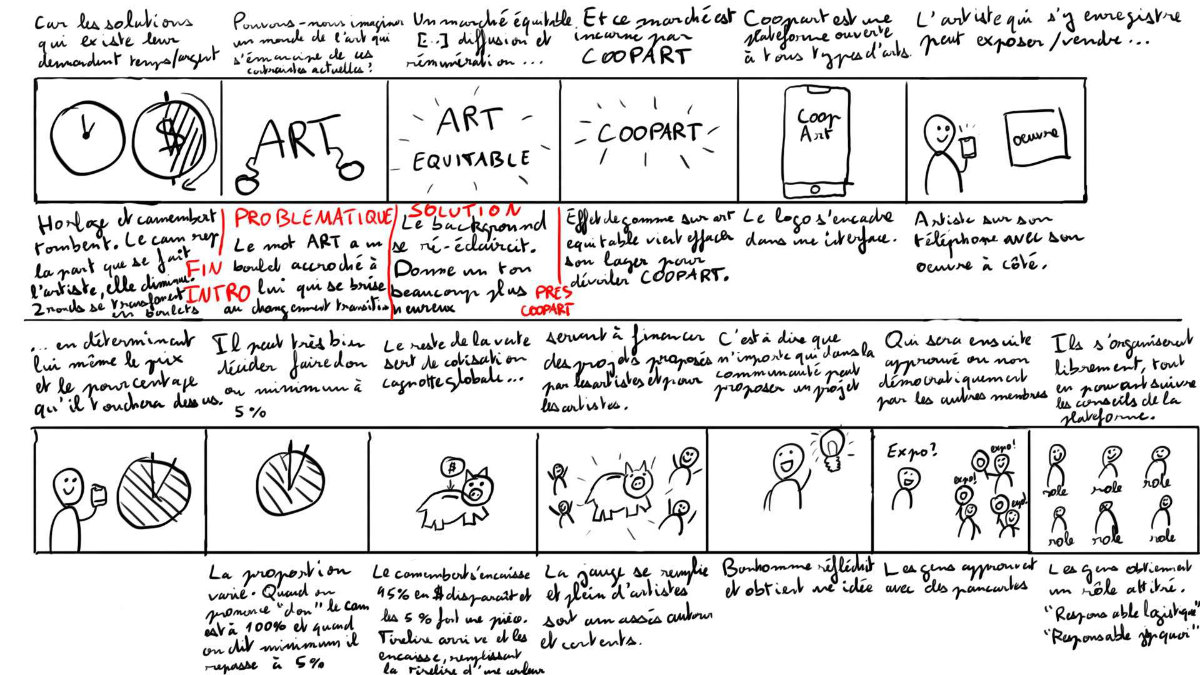 Car les solutions
qui existe leur
demandent temps/argent
Pouvons-nous imaginer
un monde de l'art qui
s'émancipe de ces
contraintes actuelles?
Un marché équitable
[...] diffusion et
rémunération ...
Et ce marché est
incarné par
COOPART
Coopart est une
plateforme ouverte
à tous types d'arts.
L'artiste qui s'y enregistre
peut exposer/vendre...
$
ART
ART
EQUITABLE
COOPART
Coop
Art
oeuvre
Horloge et camembert
tombent. Le cam rep
la part que se fait
l'artiste, elle diminue.
2 ronds se transforment
en boulets
FIN
INTRO
PROBLEMATIQUE
Le mot ART a un
boulet accroché à
lui qui se brise
au changement transition
SOLUTION
Le background
se ré-éclaircit.
Donne un ton
beaucoup plus
heureux
PRES
COOPART
Effet de gomme sur art
equitable vient effacer
son layer pour
dévoiler COOPART.
Le logo s'encadre
dans une interface.
Artiste sur son
téléphone avec son
oeuvre à côté.
... en déterminant
lui même le prix
et le pourcentage
qu'il touchera dessus.
Il peut très bien
décider faire don
ou minimum à
5%
Le reste de la vente
sert de cotisation
cagnotte globale...
servant à financer
des projets proposés
par les artistes et pour
les artistes.
C'est à dire que
n'importe qui dans la
communauté peut
proposer un projet
Qui sera ensuite
approuvé ou non
démocratiquement
par les autres membres
Ils s'organiseront
librement, tout
en pouvant suivre
les conseils de la
plateforme.
Expo?
expo!
expo!
expo!
role
role
role
role
role
role
La proportion
varie. Quand on
prononce "don" le cam
est à 100% et quand
on dit minimum il
repasse à 5%
Le camembert s'encaisse
95% en $ disparaît et
les 5% font une pièce.
Tirelire arrive et les
encaisse, remplissant
la tirelire d'une couleur
La jauge se remplie
et plein d'artistes
sont amassés autour
et contents.
Bonhomme réfléchit
et obtient une idée
Les gens approuvent
avec des pancartes
Les gens obtiennent
un rôle attitré.
"Responsable logistique"
"Responsable